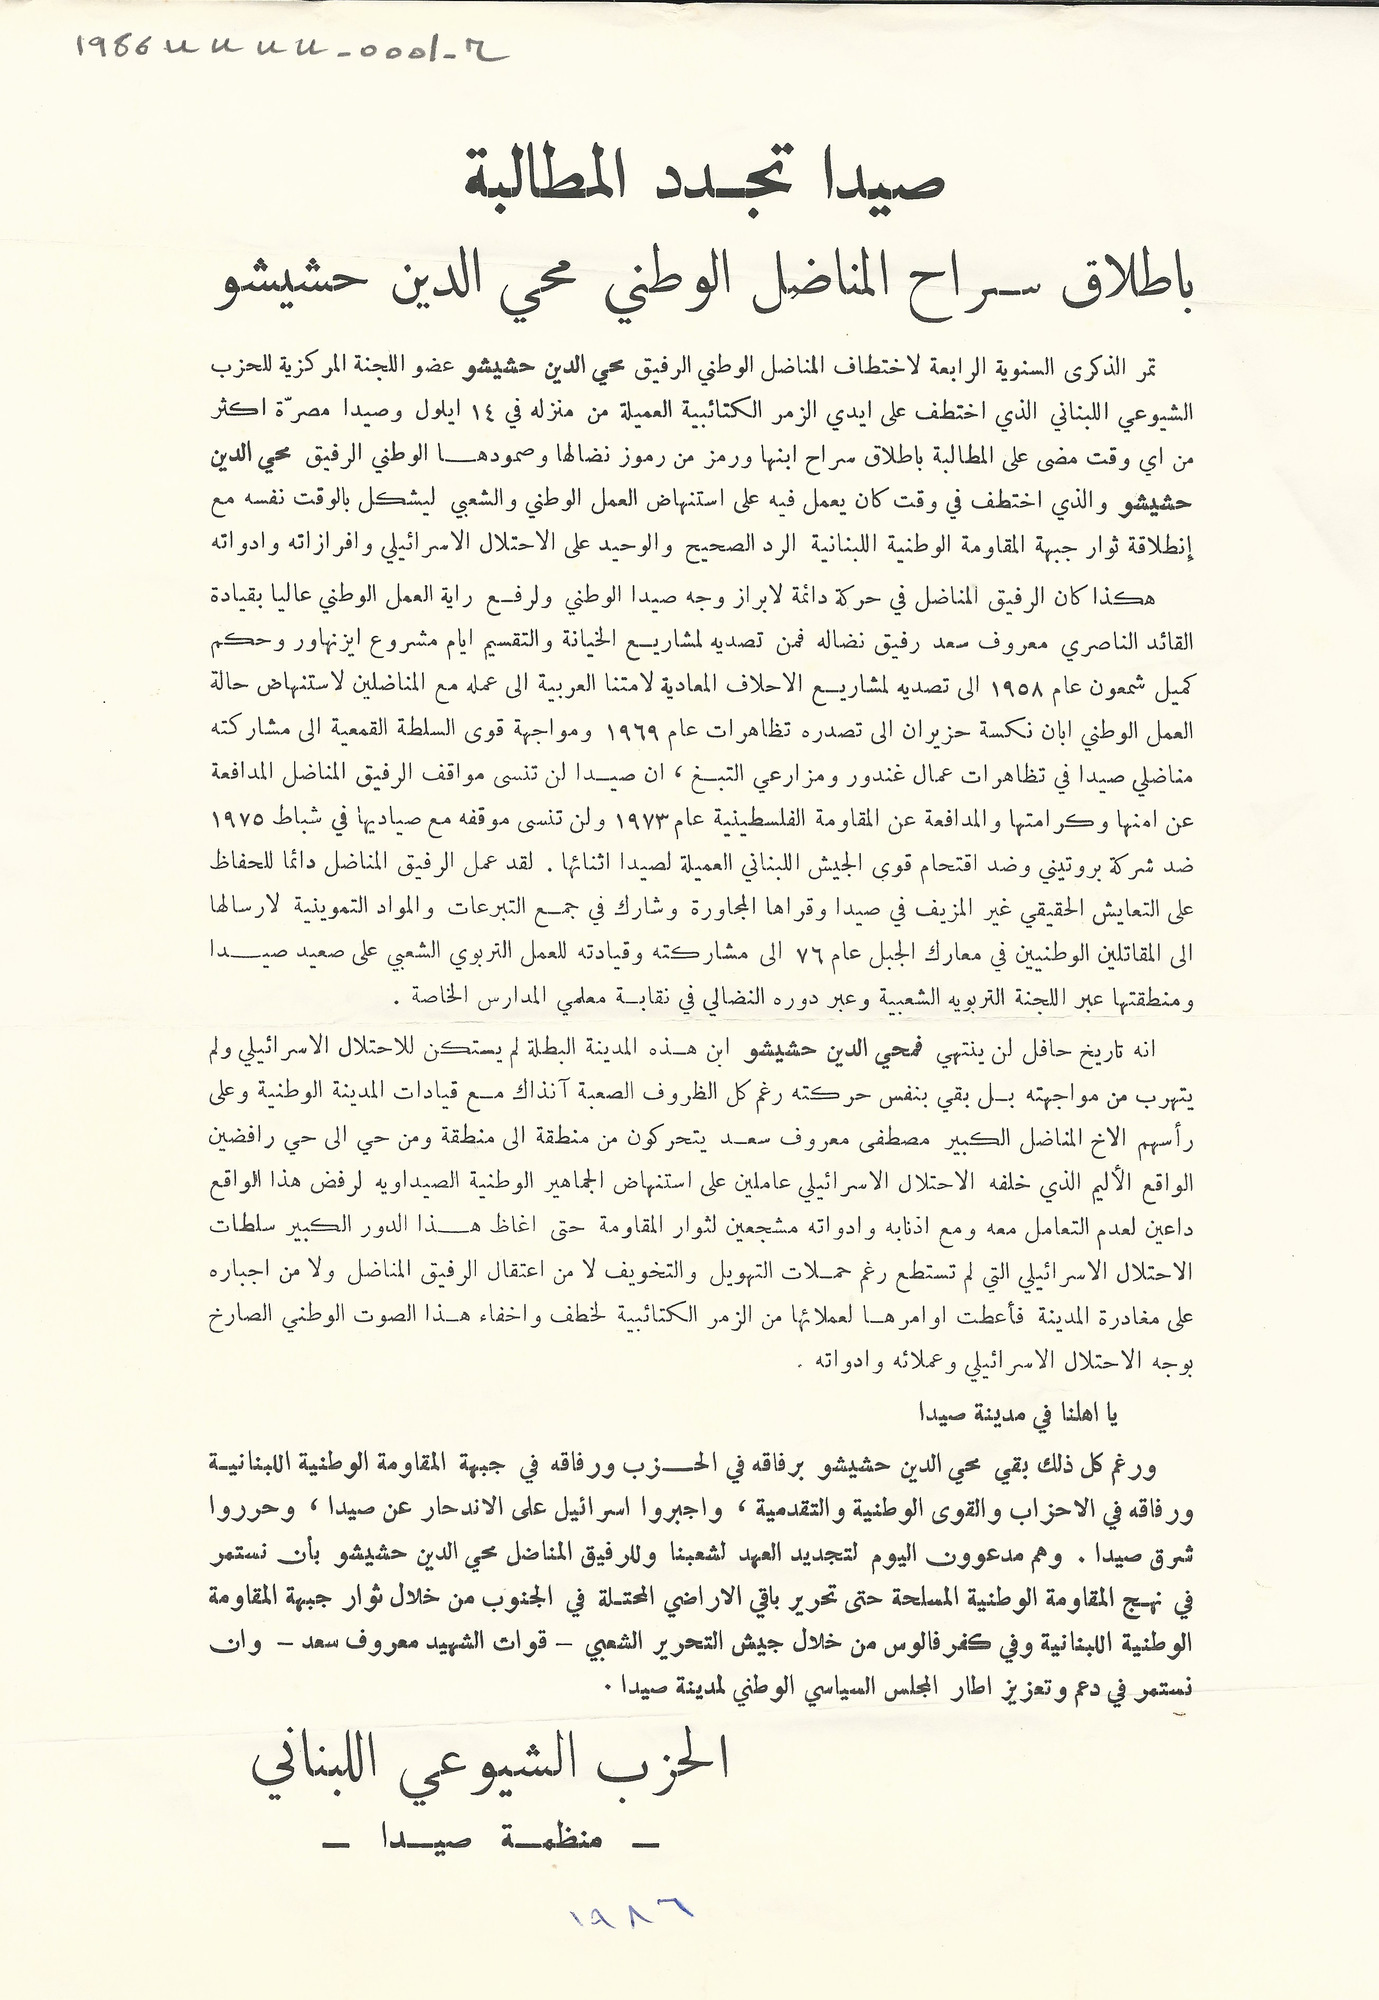 1986 uu uu_0001_R
صيدا تجـدد المطالبة
باطلاق سـراح المناضل الوطني محي الدين حشيشو
تمر الذكرى السنوية الرابعة لاختطاف المناضل الوطني الرفيق محي الدين حشيشو عضو اللجنة المركزية للحزب
الشيوعي اللبناني الذي اختطف على ايدي الزمر الكتائبية العميلة من منزله في ١٤ ايلول وصيدا مصرّة اكثر
من اي وقت مضى على المطالبة باطلاق سراح ابنها ورمز من رموز نضالها وصمودهـا الوطني الرفيق محي الدين
حشيشو والذي اختطف في وقت كان يعمل فيه على استنهاض العمل الوطني والشعبي ليشكل بالوقت نفسه مع
إنطلاقة ثوار جبهة المقاومة الوطنية اللبنانية الرد الصحيح والوحيد على الاحتلال الاسرائيلي وافرازاته وادواته
هكذا كان الرفيق المناضل في حركة دائمة لابراز وجه صيدا الوطني ولرفـع راية العمل الوطني عاليا بقيادة
القائد الناصري معروف سعد رفيق نضاله فمن تصديه لمشاريـع الخيانة والتقسيم ايام مشروع ايزنهاور وحكم
كميل شمعون عام ١٩٥٨ الى تصديه لمشاريـع الاحلاف المعادية لامتنا العربية الى عمله مع المناضلين لاستنهاض حالة
العمل الوطني ابان نكسة حزيران الى تصدره تظاهرات عام ١٩٦٩ ومواجهة قوى السلطة القمعية الى مشاركته
مناضلي صيدا في تظاهرات عمال غندور ومزارعي التبـغ ، ان صيـدا لن تنسى مواقف الرفيق المناضل المدافعة
عن امنها وكرامتها والمدافعة عن المقاومة الفلسطينية عام ١٩٧٣ ولن تنسى موقفه مع صياديها في شباط ١٩٧٥
ضد شركة بروتيني وضد اقتحام قوى الجيش اللبناني العميلة لصيدا اثنائها . لقد عمل الرفيق المناضل دائما للحفاظ
على التعايش الحقيقي غير المزيف في صيدا وقراها المجاورة وشارك في جمـع التبرعات والمواد التموينية لارسالها
الى المقاتلين الوطنيين في معارك الجبل عام ٧٦ الى مشاركته وقيادته للعمل التربوي الشعبي على صعيد صيـدا
ومنطقتها عبر اللجنة التربويه الشعبية وعبر دوره النضالي في نقابـة معلمي المدارس الخاصة .
انه تاريخ حافل لن ينتهي فمحي الدين حشيشو ابن هـذه المدينة البطلة لم يستكن للاحتلال الاسرائيلي ولم
يتهرب من مواجهته بـل بقي بنفس حركته رغم كل الظروف الصعبة آنذاك مـع قيادات المدينة الوطنية وعلى
رأسهم الاخ المناضل الكبير مصطفى معروف سعـد يتحركون من منطقة الى منطقة ومن حي الى حي رافضين
الواقع الأليم الذي خلفه الاحتلال الاسرائيلي عاملين على استنهاض الجماهير الوطنية الصيداويه لرفض هذا الواقع
داعين لعدم التعامل معه ومع اذنابه وادواته مشجعين لثوار المقاومة حتى اغاظ هـذا الدور الكبير سلطات
الاحتلال الاسرائيلي التي لم تستطع رغم حمـلات التهويل والتخويف لا من اعتقال الرفيق المناضل ولا من اجباره
على مغادرة المدينة فأعطت اوامرهـا لعملائها من الزمر الكتائبية لخطف واخفاء هـذا الصوت الوطني الصارخ
بوجه الاحتلال الاسرائيلي وعملائه وادواته .
يا اهلنا في مدينة صيدا
ورغم كل ذلك بقي محي الدين حشيشو برفاقه في الحـزب ورفاقه في جبهة المقاومة الوطنية اللبنانيـة
ورفاقه في الاحزاب والقوى الوطنية والتقدمية ، واجبروا اسرائيل على الاندحار عن صيدا ، وحرروا
شرق صيدا . وهم مدعوون اليوم لتجديد العهد لشعبنا وللرفيق المناضل محي الدين حشيشو بأن نستمر
في نهـج المقاومة الوطنية المسلحة حتى تحرير باقي الاراضي المحتـلة في الجنوب من خلال ثوار جبهة المقاومة
الوطنية اللبنانية وفي كفرفالوس من خلال جيش التحرير الشعبي – قوات الشهيد معروف سعد – وان
نستمر في دعم وتعزيز اطار المجلس السياسي الوطني لمدينة صيدا .
الحزب الشيوعي اللبناني
– منظمـة صيـدا –
١٩٨٦